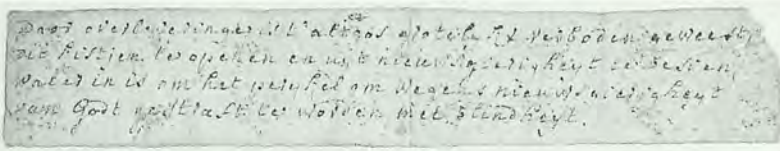 Door overleveringe is 't altoos grotelyckx verboden geweest,
dit kistjen te openen en uyt nieuwsgierigheyt te besien,
water in is om het perykel om wegens nieuwsgierigheyt
van Godt gestraft te worden met blindheyt.